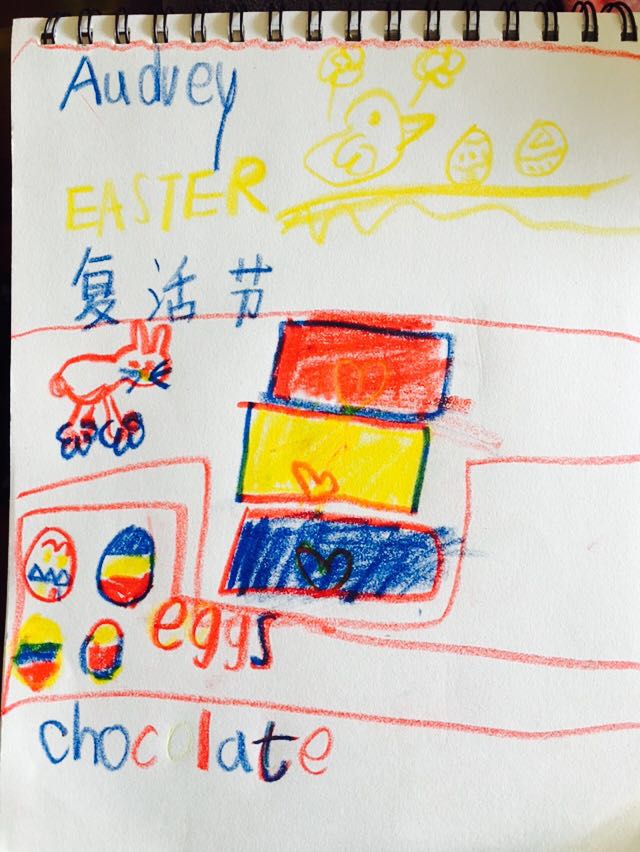 Audrey
EASTER
复活节
eggs
chocolate